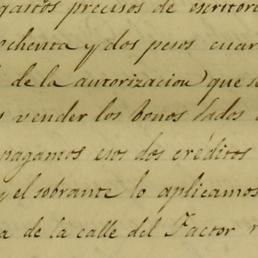 gastos precisos de escritori
ochenta y dos pesos cuar
de la autorizacion que se
vender los bonos dados
pagamos esos dos créditos
y el sobrante lo aplicamos
a de la calle del Factor